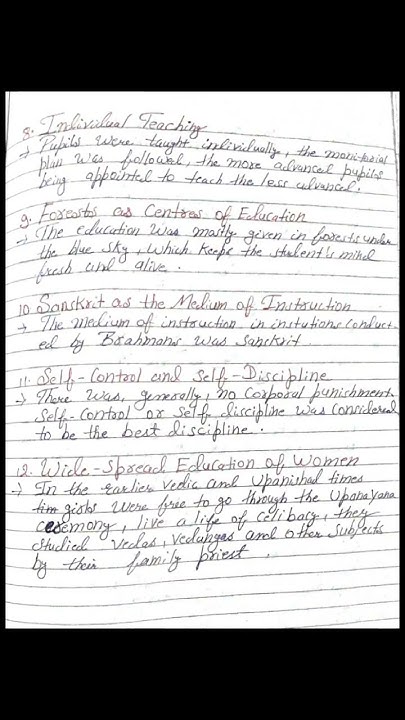 8. Individual Teaching
→ Pupils were taught individually, the monitorial
plan was followed, the more advanced pupils
being appointed to teach the less advanced.
9. Forests as Centres of Education
→ The education was mostly given in forests under
the blue sky, which keeps the student's mind
fresh and alive.
10 Sanskrit as the Medium of Instruction
→ The medium of instruction in instutions conduct-
ed by Brahmans was Sanskrit.
11. Self-Control and Self-Discipline
→ There was, generally, no corporal punishment.
Self-control or self discipline was considered
to be the best discipline.
12. Wide-Spread Education of Women
→ In the earlier vedic and Upanishad times
girls were free to go through the Upanayana
ceremony, live a life of celibacy, they
studied vedas, vedangas and other subjects
by their family priest.